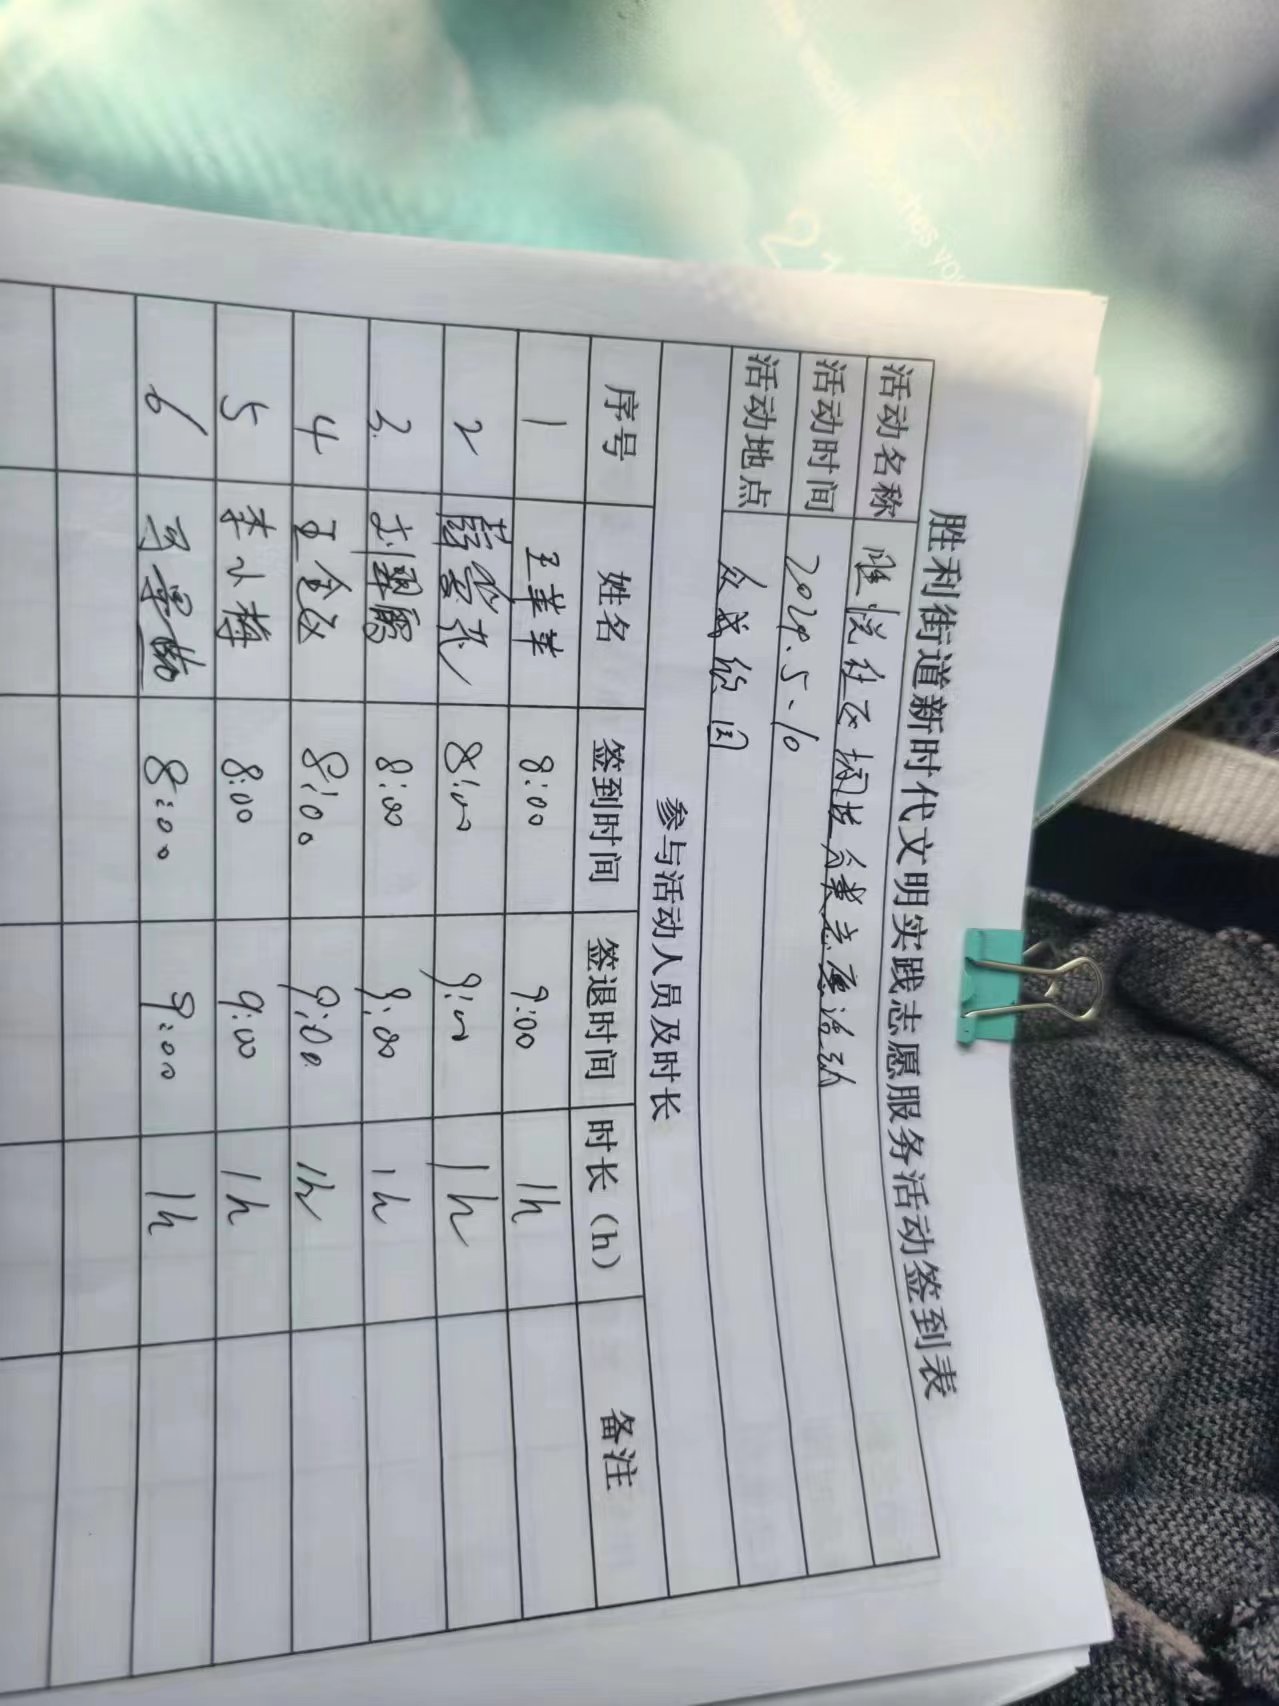 胜利街道新时代文明实践志愿服务活动签到表
活动名称 胜悦社区垃圾分类志愿活动
活动时间 2024.5.10
活动地点 众成纺园
参与活动人员及时长
序号 姓名 签到时间 签退时间 时长(h) 备注
1 王苹苹 8:00 9:00 1h
2 8:00 9:00 1h
3. 刘翠鹏 8:00 9:00 1h
4 王金 8:00 9:00 1h
5 李小梅 8:00 9:00 1h
6 8:00 9:00 1h
21